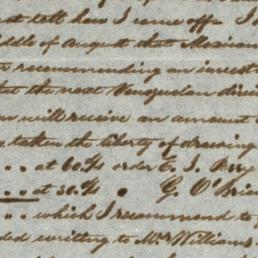 tell how I come off. I
ddle of August that Mexican
recommending an invest
the next Venezuelan divi
will receive an amount
taken the liberty of drawing
.. at 60 order E. I.
.. at 30 . G. O'Brien
.. which I recommend to
ded writing to Mr Williams